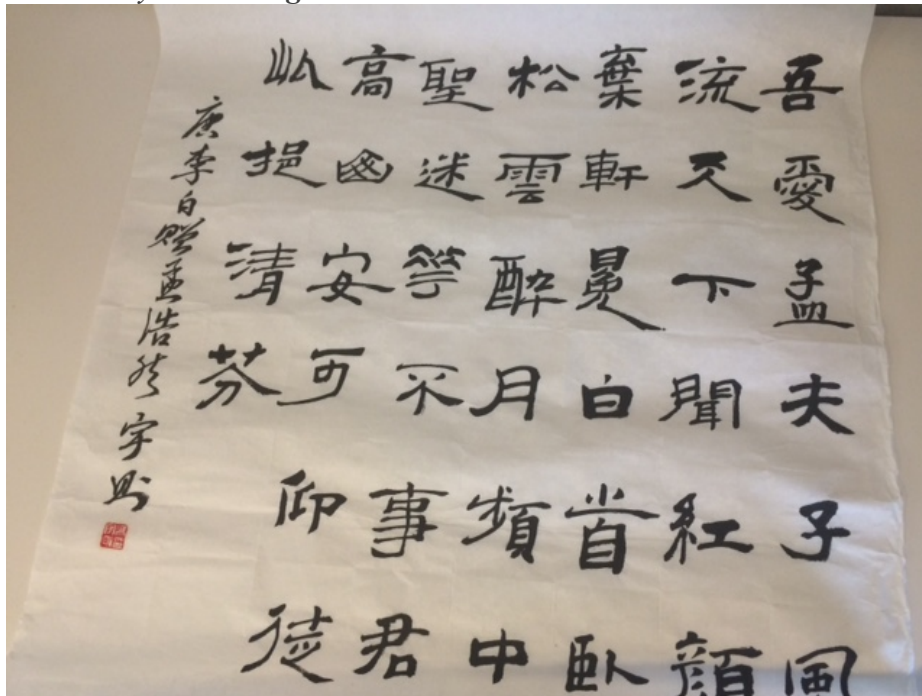 吾愛孟夫子風
流天下聞紅顏
棄軒冕白首臥
松雲醉月頻中
聖迷花不事君
高山安可仰徒
此挹清芬
唐李白贈孟浩然 宇則